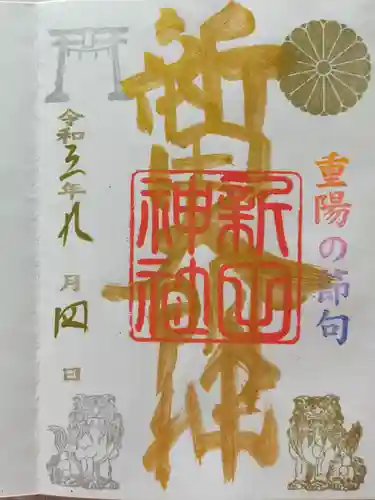 重陽の節句
新山大神
新山
神社
令和三年九月四日